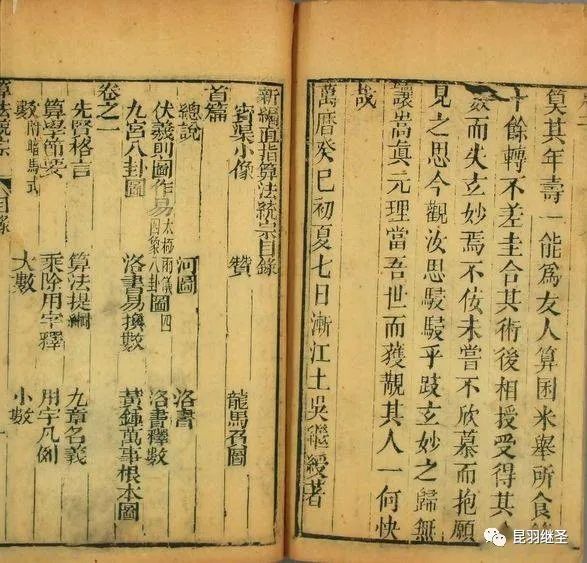 算其年壽一能為友人算困米舉所食
十餘轉不差圭合其術後相授受得其
数而失玄妙焉不佞未嘗不欣慕而抱願
見之思今觀汝思駸駸乎跂玄妙之歸無
讓嵩真元理當吾世而獲覯其人一何快
哉
萬曆癸巳初夏七日漸江士吳繼綬著
新編直指算法統宗目錄
賓渠小像 贊 龍馬負圖
首篇
總說 河圖 洛書
伏羲則圖作易 太極兩儀四象八卦圖四 洛書釋數
九宮八卦圖 洛書易換數 黃鍾萬事根本圖
卷之一
先賢格言 算法提綱 九章名義
算學節要 乘除用字釋 用字凡例
數 附暗馬式 大數 小數
算法統宗 目錄
昆羽继圣